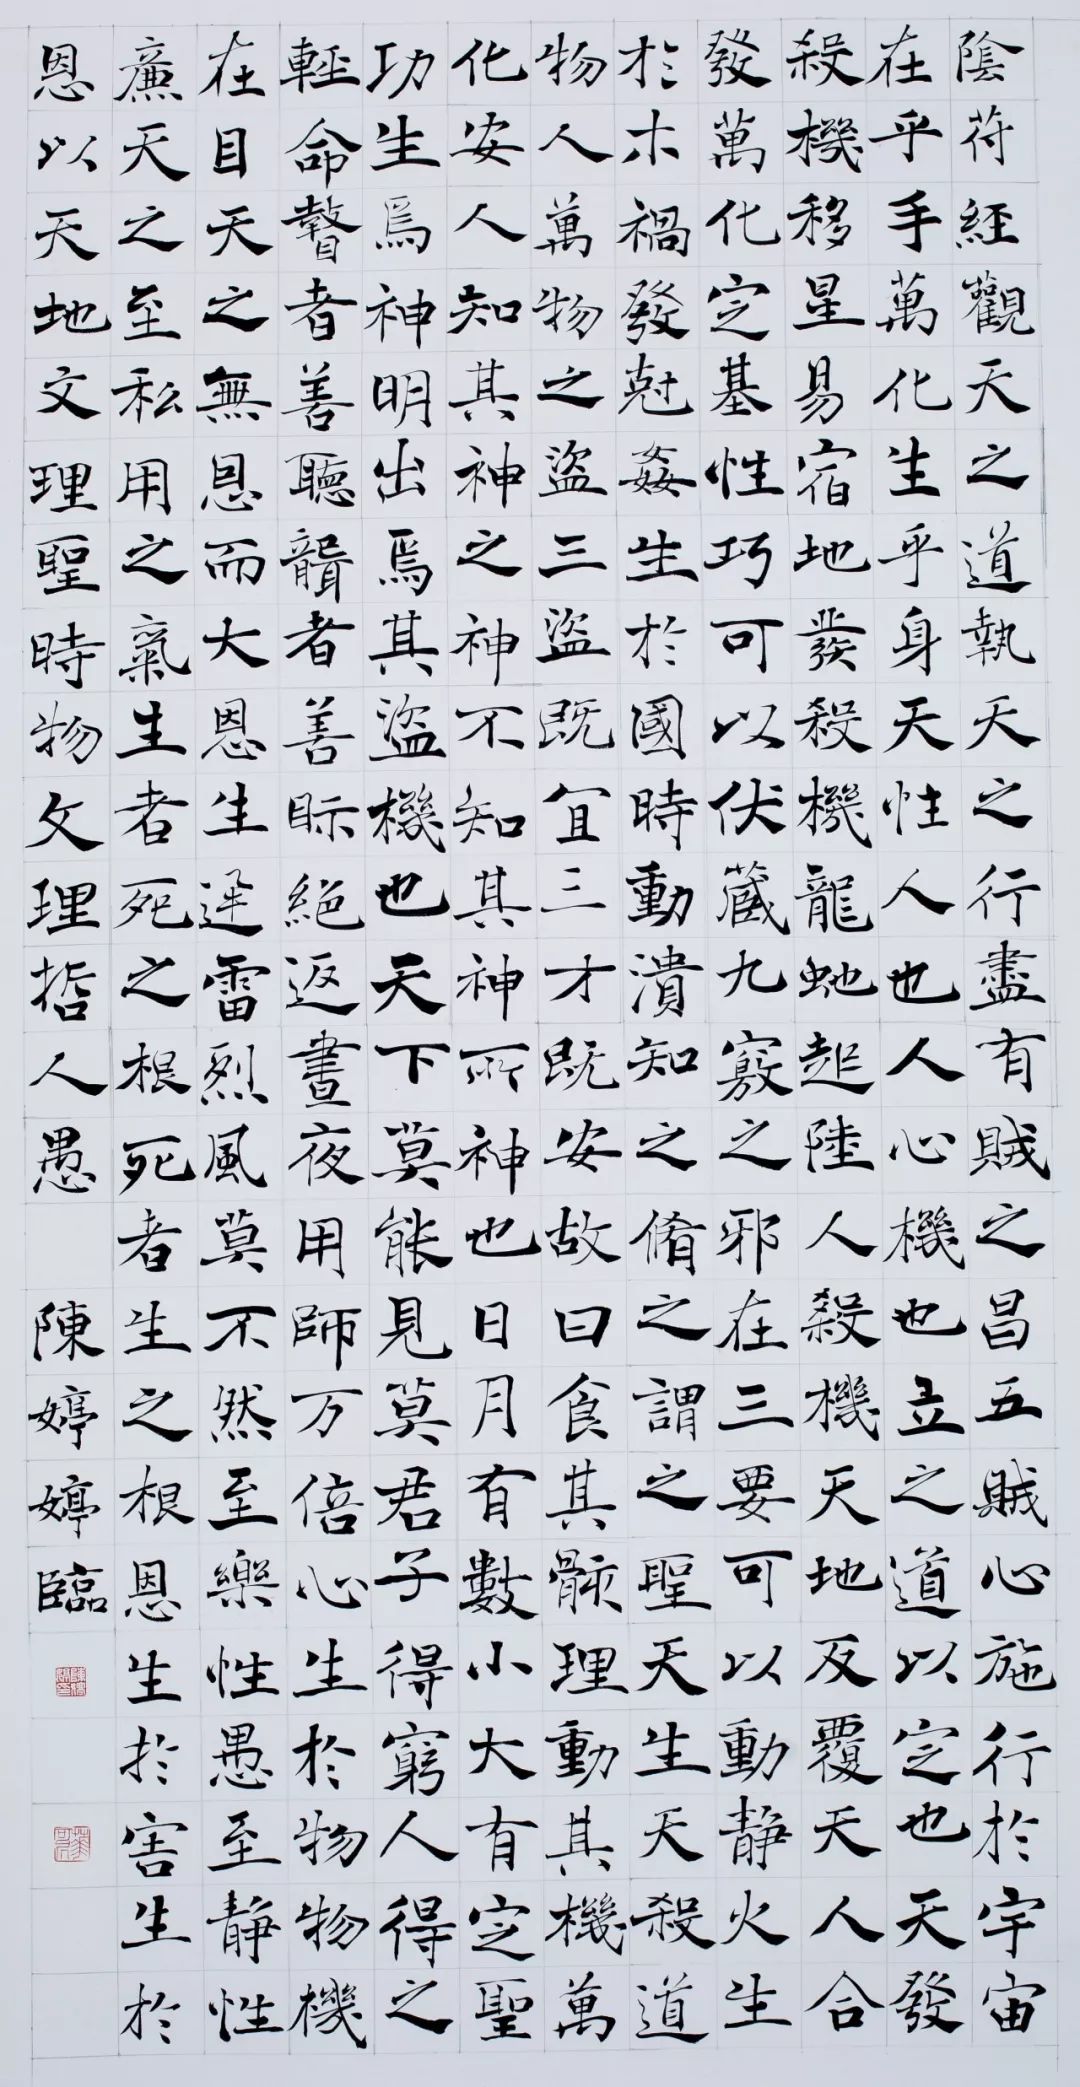 陰符經觀天之道執天之行盡有賊之昌五賊心施行於宇宙
在乎手萬化生乎身天性人也人心機也立之道以定也天發
殺機移星易宿地發殺機龍虵起陸人殺機天地反覆天人合
發萬化定基性巧可以伏藏九竅之邪在三要可以動静火生
於木禍發尅姦生於國時動潰知之脩之謂之聖天生天殺道
物人萬物之盜三盜既宜三才既安故曰食其骸理動其機萬
化安人知其神之神不知其神所神也日月有數小大有定聖
功生焉神明出焉其盜機也天下莫能見莫君子得窮人得之
輕命瞽者善聽聾者善眎絕返晝夜用師万倍心生於物物機
在目天之無恩而大恩生迅雷烈風莫不然至樂性愚至静性
廉天之至私用之氣生者死之根死者生之根恩生於害生於
恩以天地文理聖時物文理哲人愚
陳婷婷臨